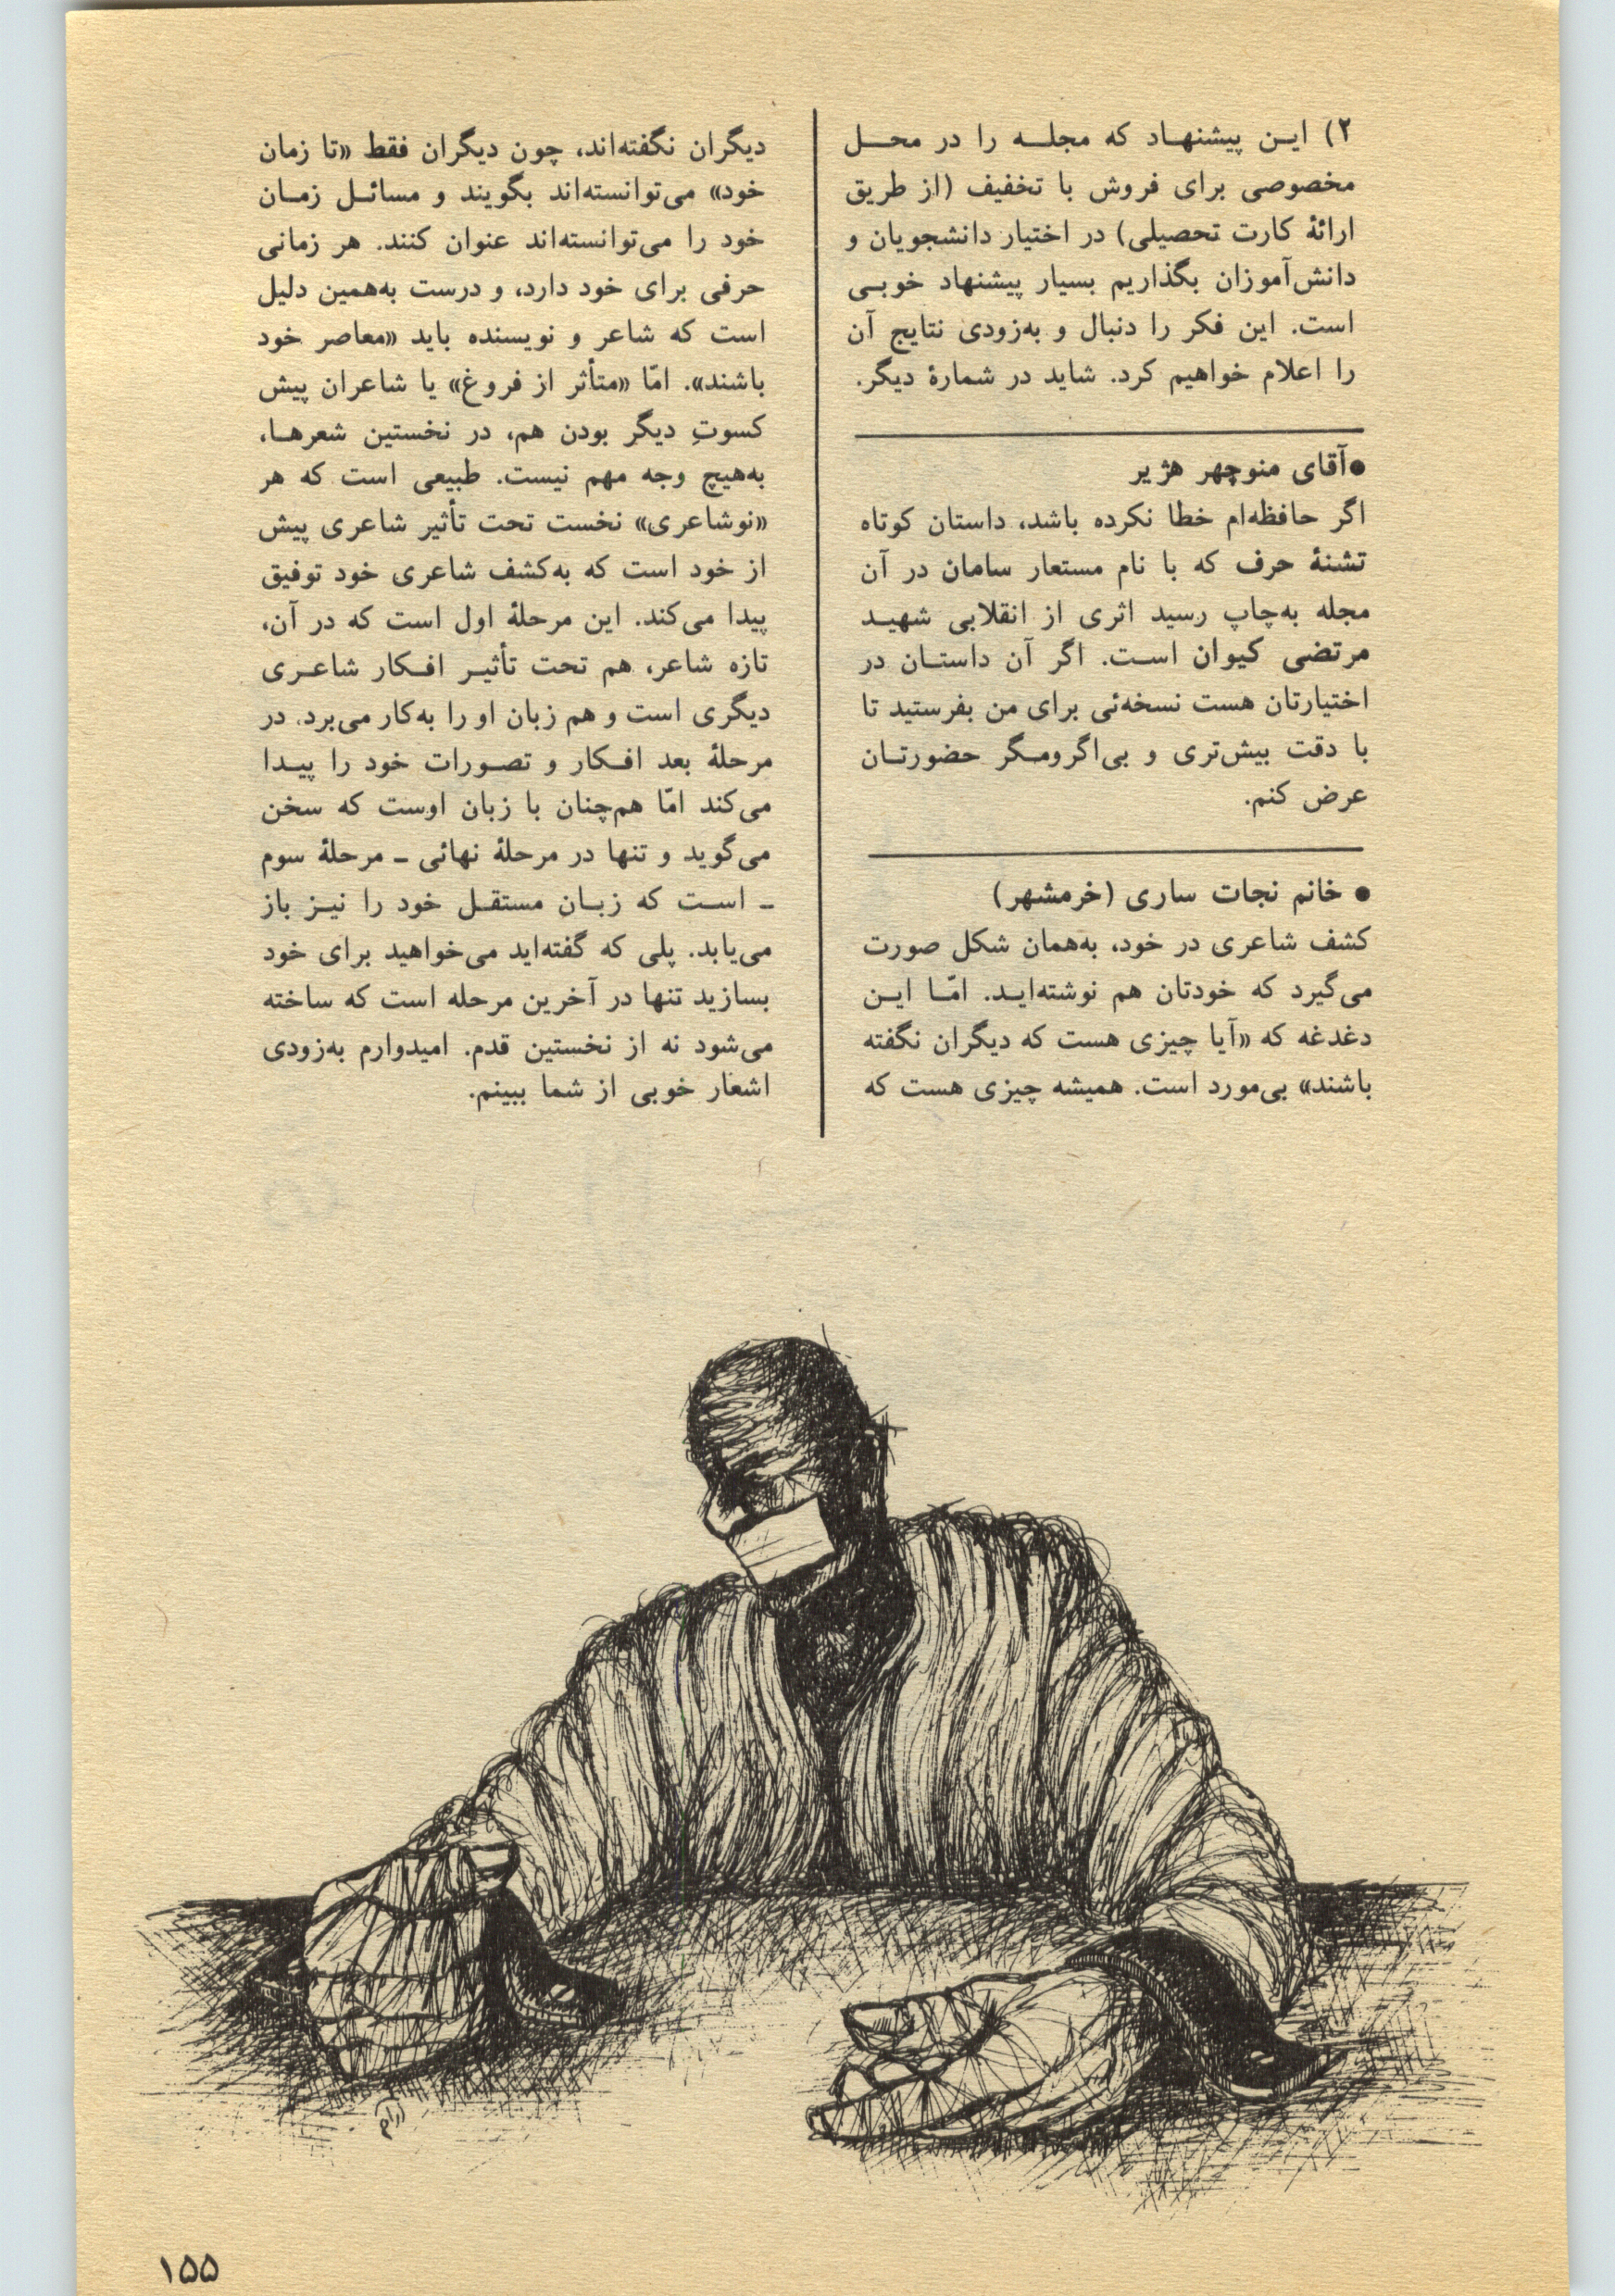 ۲) این پیشنهاد که مجله را در محل
مخصوصی برای فروش با تخفیف (از طریق
ارائهٔ کارت تحصیلی) در اختیار دانشجویان و
دانش‌آموزان بگذاریم بسیار پیشنهاد خوبی
است. این فکر را دنبال و به‌زودی نتایج آن
را اعلام خواهیم کرد. شاید در شمارهٔ دیگر.
●آقای منوچهر هژیر
اگر حافظه‌ام خطا نکرده باشد، داستان کوتاه
تشنهٔ حرف که با نام مستعار سامان در آن
مجله به‌چاپ رسید اثری از انقلابی شهید
مرتضی کیوان است. اگر آن داستان در
اختیارتان هست نسخه‌ئی برای من بفرستید تا
با دقت بیش‌تری و بی‌اگرومگر حضورتان
عرض کنم.
● خانم نجات ساری (خرمشهر)
کشف شاعری در خود، به‌همان شکل صورت
می‌گیرد که خودتان هم نوشته‌اید. امّا این
دغدغه که «آیا چیزی هست که دیگران نگفته
باشند» بی‌مورد است. همیشه چیزی هست که
دیگران نگفته‌اند، چون دیگران فقط «تا زمان
خود» می‌توانسته‌اند بگویند و مسائل زمان
خود را می‌توانسته‌اند عنوان کنند. هر زمانی
حرفی برای خود دارد، و درست به‌همین دلیل
است که شاعر و نویسنده باید «معاصر خود
باشند». امّا «متأثر از فروغ» یا شاعران پیش
کسوتِ دیگر بودن هم، در نخستین شعرها،
به‌هیچ وجه مهم نیست. طبیعی است که هر
«نوشاعری» نخست تحت تأثیر شاعری پیش
از خود است که به‌کشف شاعری خود توفیق
پیدا می‌کند. این مرحلهٔ اول است که در آن،
تازه شاعر، هم تحت تأثیر افکار شاعری
دیگری است و هم زبان او را به‌کار می‌برد. در
مرحلهٔ بعد افکار و تصورات خود را پیدا
می‌کند امّا هم‌چنان با زبان اوست که سخن
می‌گوید و تنها در مرحلهٔ نهائی ـ مرحلهٔ سوم
ـ است که زبان مستقل خود را نیز باز
می‌یابد. پلی که گفته‌اید می‌خواهید برای خود
بسازید تنها در آخرین مرحله است که ساخته
می‌شود نه از نخستین قدم. امیدوارم به‌زودی
اشعار خوبی از شما ببینم.
۱۵۵